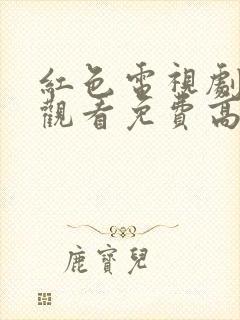 紅色電視劇
觀看免費高
鹿寶兒